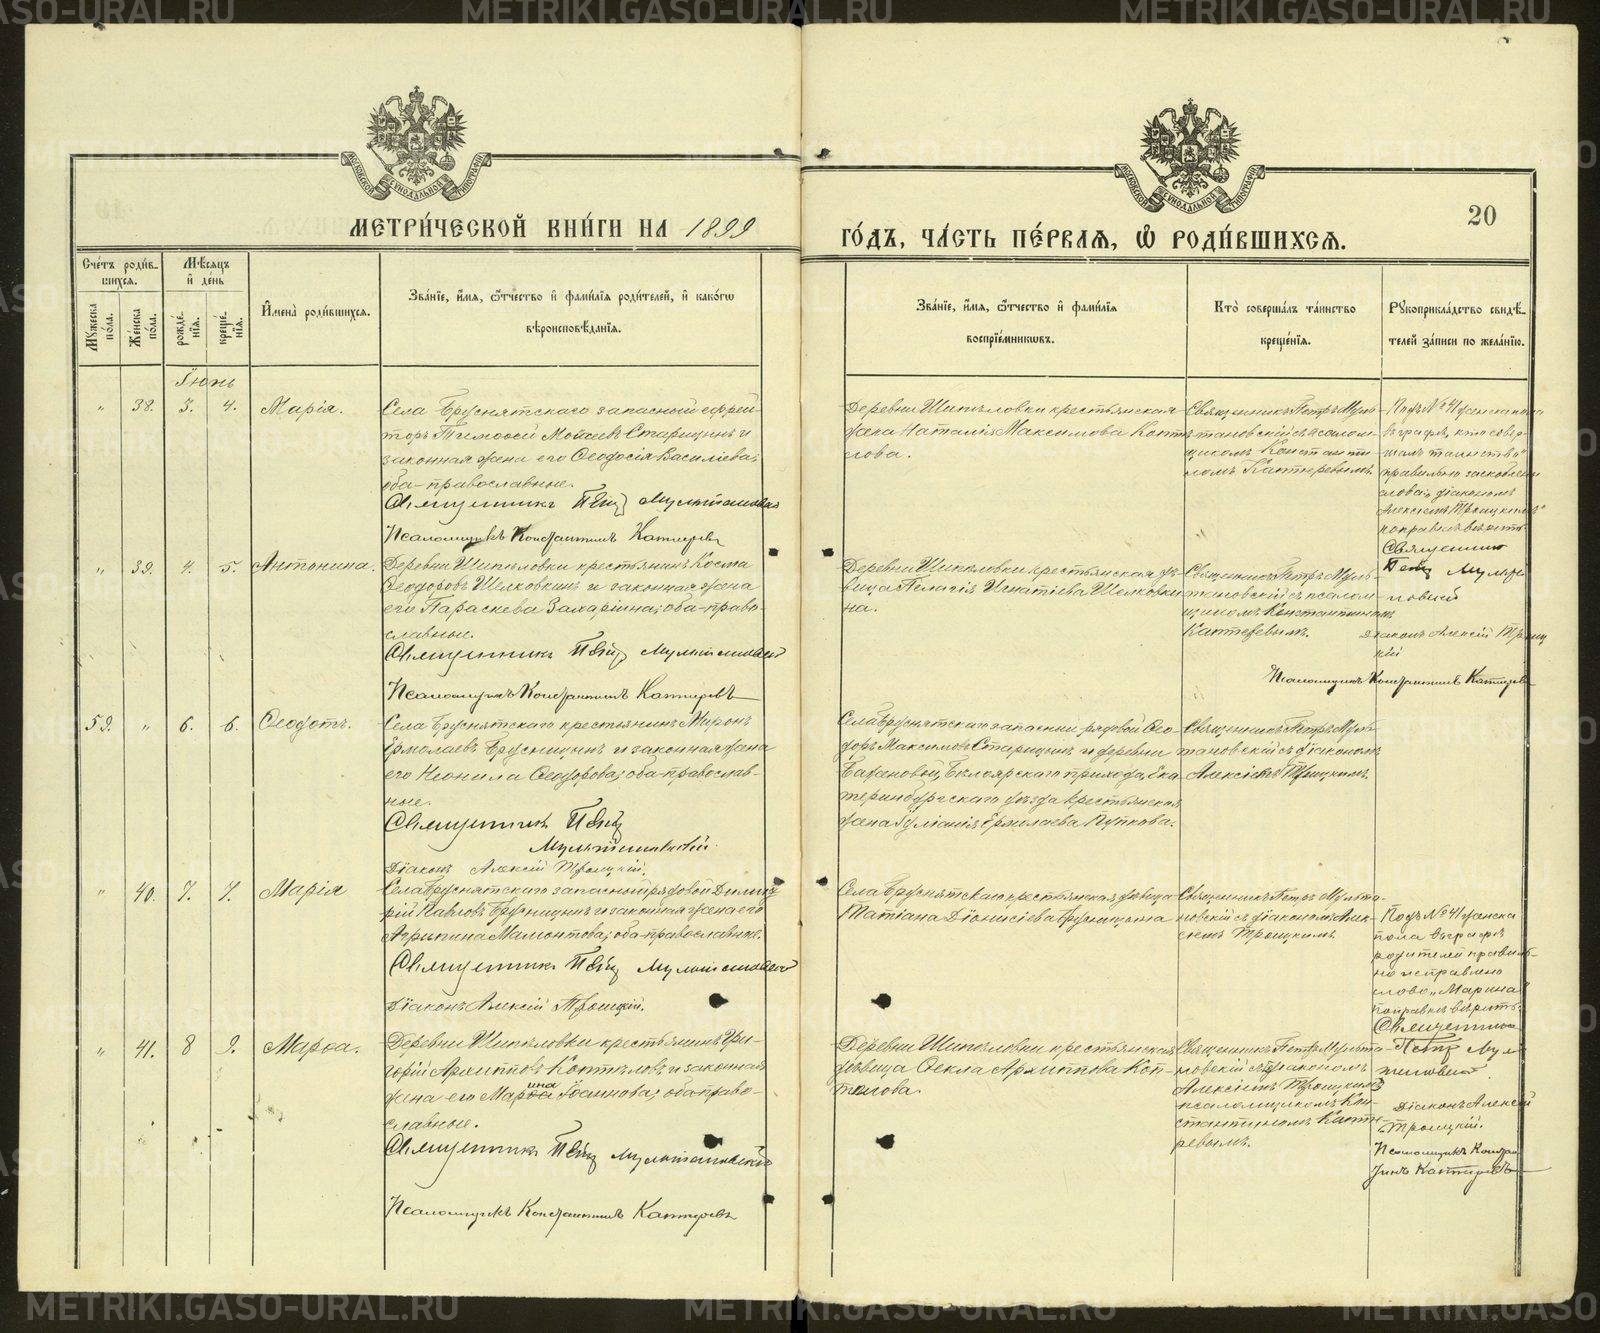 METRIKI.GASO-URAL.RU
МЕТРИ́ЧЕСКОЙ КНИ́ГИ НА 1899
ГО́ДЪ, ЧА́СТЬ ПЕ́РВАЯ, Ѡ РОДИ́ВШИХСЯ.
20
Сче́тъ роди́в-
шихся.
Мѣ́сяцъ
и҆ де́нь
Мꙋ́жеска по́ла.
Же́нска по́ла.
рожде́нїѧ.
креще́нїѧ.
И҆мена̀ роди́вшихся.
Зва́нїе, и҆́мя, ѻ҆́тчество и҆ фами́лїя роди́телей, и҆ како́гѡ
вѣроисповѣ́данїя.
Зва́нїе, и҆́мя, ѻ҆́тчество и҆ фами́лїя
воспрїе́мникѡвъ.
Кто̀ соверша́лъ та́инство
креще́нїя.
Рꙋкоприкла́дство свидѣ́-
телей за́писи по жела́нїю.
Іюнь
" 38. 3. 4. Марія.
Села Бруснятскаго запасный ефрей-
торъ Тимоѳей Моѵсеевъ Старицынъ и
законная жена его Ѳеодосія Василіева;
оба-православные.
Священникъ Петръ Мультановскій
Псаломщикъ Константинъ Катеревъ
Деревни Шипѣловки крестьянская
жена Наталія Максимова Копт-
лова.
Священникъ Петръ Муль-
тановскій съ псалом-
щикомъ Константи-
номъ Катеревымъ.
Подъ № 41 женска пола
въ графѣ, кто совер-
шалъ таинство
правильно
слова: діакономъ
Алексіемъ Троицкимъ"
поправкѣ вѣрить.
Священникъ
Петръ Мульта-
новскій
Діаконъ Алексій Троиц-
кій
Псаломщикъ Константинъ Катеревъ
" 39. 4. 5. Антонина.
Деревни Шипѣловки крестьянинъ Косма
Ѳеодоровъ Шелковкинъ и законная жена
его Параскева Захаріина; оба-право-
славные.
Священникъ Петръ Мультановскій
Псаломщикъ Константинъ Катеревъ
Деревни Шипѣловки крестьянская дѣ-
вица Пелагія Игнатіева Шелковки-
на.
Священникъ Петръ Муль-
тановскій съ псалом-
щикомъ Константиномъ
Катеревымъ.
59. " 6. 6. Ѳеодотъ.
Села Бруснятскаго крестьянинъ Миронъ
Ермолаевъ Брусницынъ и законная жена
его Неонила Ѳеодорова; оба-православ-
ные.
Священникъ Петръ
Мультановскій.
Діаконъ Алексій Троицкій.
Села Бруснятскаго запасный рядовой Ѳео-
доръ Максимовъ Старицынъ и деревни
Барановой, Бѣлоярскаго прихода, Ека-
теринбургскаго уѣзда крестьянская
жена Іуліанія Ермолаева Пупкова.
Священникъ Петръ Муль-
тановскій съ діакономъ
Алексіемъ Троицкимъ.
" 40. 7. 7. Марія
Села Бруснятскаго запасный рядовой Димит-
рій Павловъ Брусницынъ и законная жена его
Агрипина Мамонтова; оба-православные.
Священникъ Петръ Мультановскій
Діаконъ Алексій Троицкій.
Села Бруснятскаго крестьянская дѣвица
Татіана Діонисіева Брусницына
Священникъ Петръ Мульта-
новскій съ діакономъ Алек-
сіемъ Троицкимъ.
Подъ № 41 женска
пола въ графѣ
родителей правиль-
но исправлено
слово "Марина"
поправкѣ вѣрить.
Священникъ
Петръ Муль-
тановскій.
Діаконъ Алексій
Троицкій.
Псаломщикъ Констан-
тинъ Катеревъ
" 41. 8 9. Марѳа.
Деревни Шипѣловки крестьянинъ Гри-
горій Архипповъ Коптѣловъ и законная
жена его Марина Іоаннова; оба-право-
славные.
Священникъ Петръ Мультановскій
Псаломщикъ Константинъ Катеревъ
Деревни Шипѣловки крестьянская
дѣвица Ѳекла Архиппова Коп-
телова.
Священникъ Петръ Мульта-
новскій съ діакономъ
Алексіемъ Троицкимъ
псаломщикомъ Кон-
стантиномъ Кате-
ревымъ.